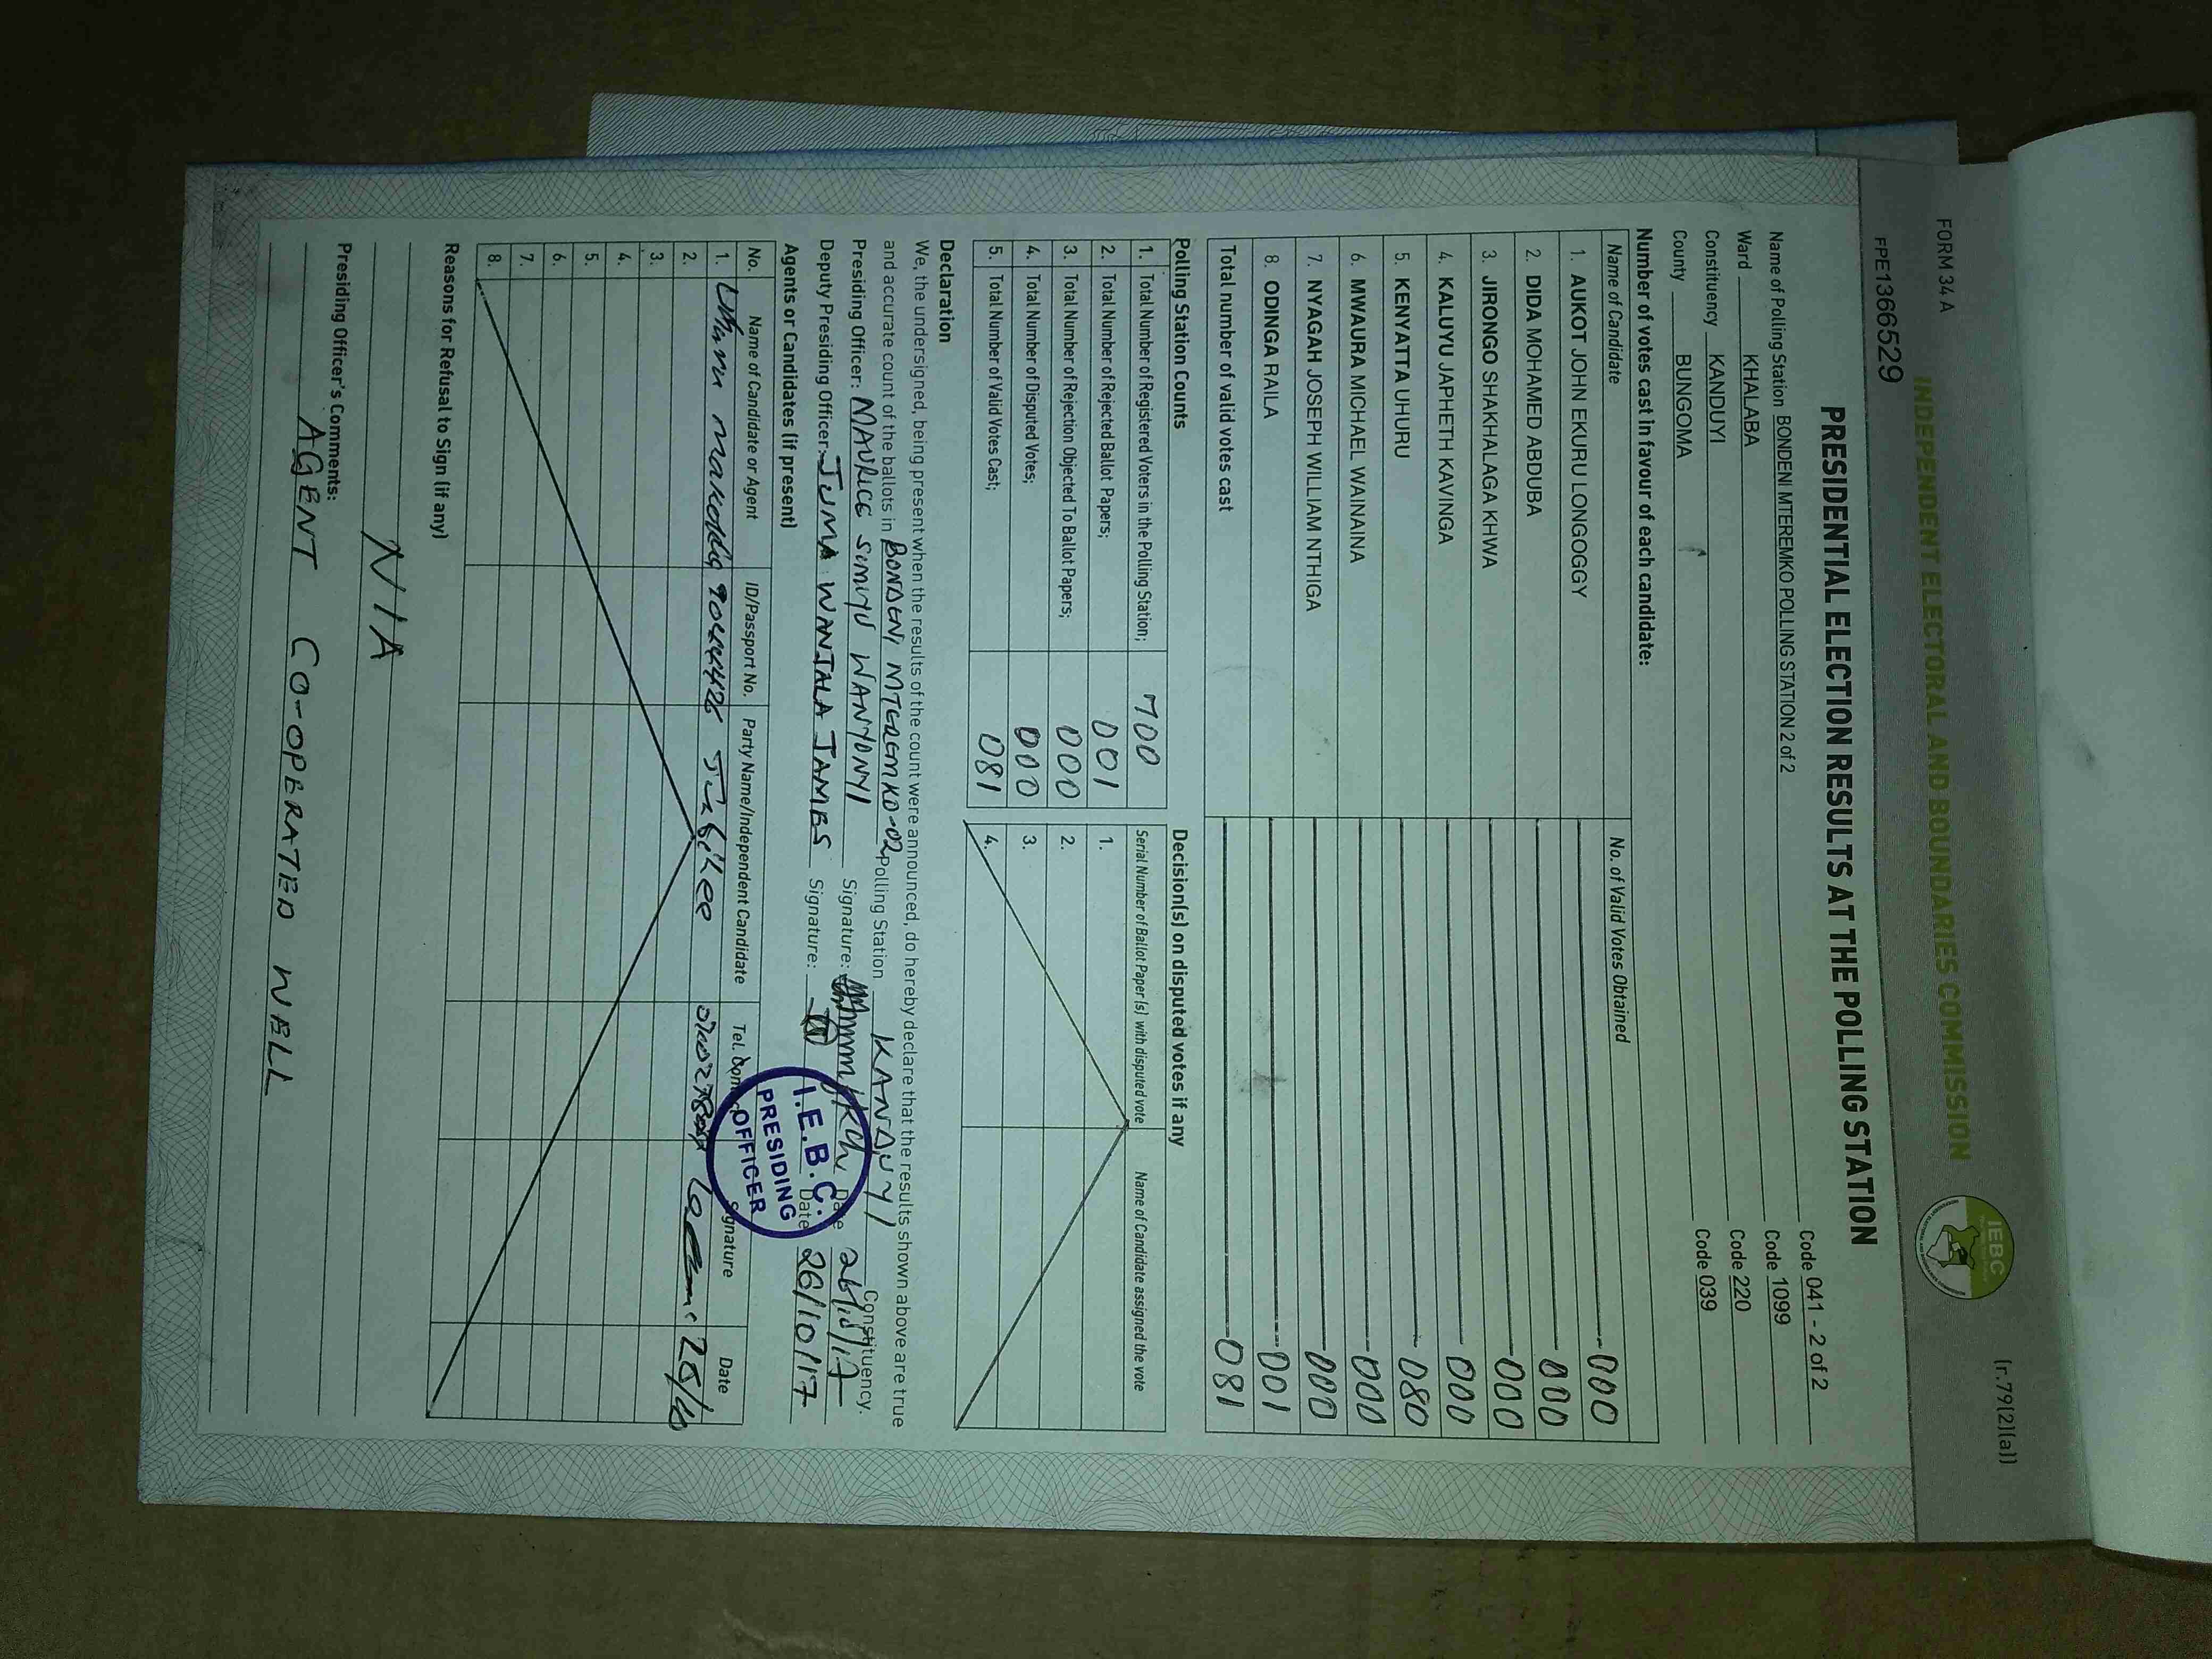 FORM 34 A
(r.79(2)(a))
INDEPENDENT ELECTORAL AND BOUNDARIES COMMISSION
IEBC
FPE1366529
PRESIDENTIAL ELECTION RESULTS AT THE POLLING STATION
Name of Polling Station BONDENI MTEREMKO POLLING STATION 2 of 2 Code 041 - 2 of 2
Ward KHALABA Code 1099
Constituency KANDUYI Code 220
County BUNGOMA Code 039
Number of votes cast in favour of each candidate:
Name of Candidate No. of Valid Votes Obtained
1. AUKOT JOHN EKURU LONGOGGY 000
2. DIDA MOHAMED ABDUBA 000
3. JIRONGO SHAKHALAGA KHWA 000
4. KALUYU JAPHETH KAVINGA 000
5. KENYATTA UHURU 080
6. MWAURA MICHAEL WAINAINA 000
7. NYAGAH JOSEPH WILLIAM NTHIGA 000
8. ODINGA RAILA 001
Total number of valid votes cast 081
Polling Station Counts Decision(s) on disputed votes if any
Serial Number of Ballot Paper (s) with disputed vote Name of Candidate assigned the vote
1. Total Number of Registered Voters in the Polling Station; 700
2. Total Number of Rejected Ballot Papers; 001 1.
3. Total Number of Rejection Objected To Ballot Papers; 000 2.
4. Total Number of Disputed Votes; 000 3.
5. Total Number of Valid Votes Cast; 081 4.
Declaration
We, the undersigned, being present when the results of the count were announced, do hereby declare that the results shown above are true
and accurate count of the ballots in BONDENI MTEREMKO-02 Polling Station KANDUYI Constituency.
Presiding Officer: MAURICE SIMIYU WANYONYI Signature: Date 26/10/17
Deputy Presiding Officer: JUMA WANJALA JAMES Signature: Date 26/10/17
I.E.B.C.
PRESIDING
OFFICER
Agents or Candidates (if present)
No. Name of Candidate or Agent ID/Passport No. Party Name/Independent Candidate Tel. Signature Date
1. Jubilee 26/10
2.
3.
4.
5.
6.
7.
8.
Reasons for Refusal to Sign (if any)
N/A
Presiding Officer's Comments:
AGENT CO-OPERATED WELL